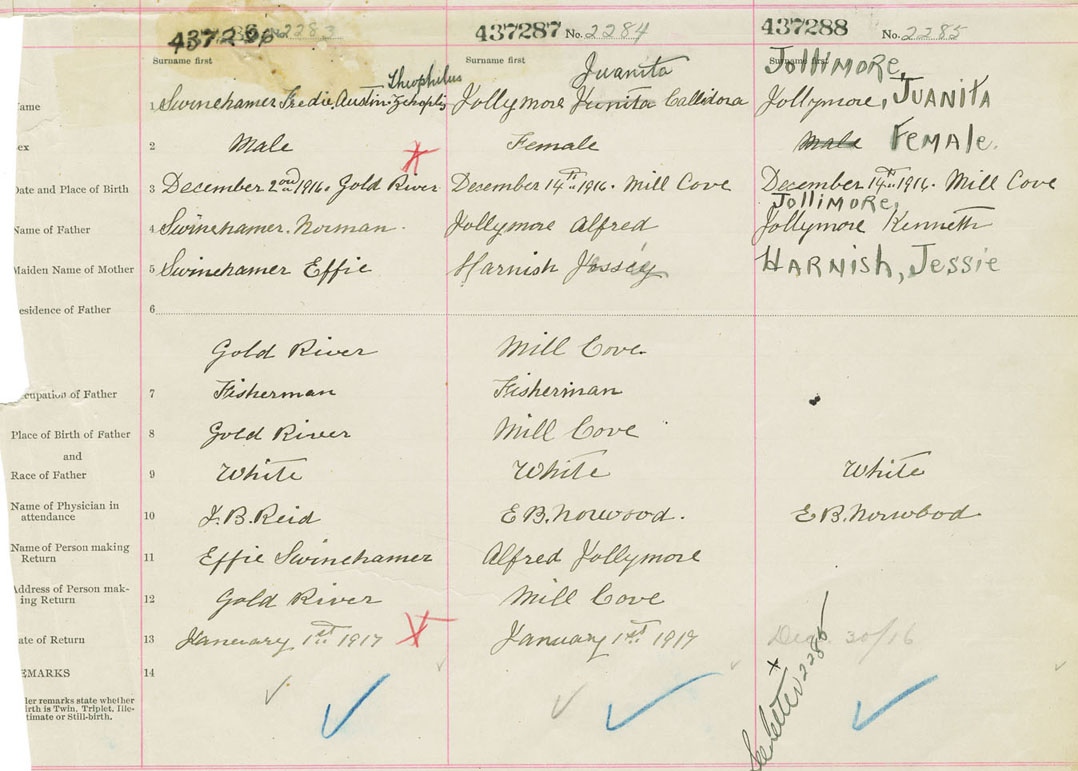 No. 2283
437287 No. 2284
437288 No. 2285
Surname first
Surname first
Surname first
Theophilus
Juanita
Jollimore,
ame 1 Swinehamer Fredie, Austin
Jollymore Junita Callidora
Jollymore, JUANITA
ex 2 Male
Female
Male FEMALE.
Date and Place of Birth 3 December 2nd 1916. Gold River
December 14th 1916. Mill Cove
December 14th 1916. Mill Cove
Jollimore,
Name of Father 4 Swinehamer. Norman.
Jollymore Alfred
Jollymore Kenneth
Maiden Name of Mother 5 Swinehamer Effie
Harnish Jossey
HARNISH, Jessie
esidence of Father 6
Gold River
Mill Cove.
cupation of Father 7 Fisherman
Fisherman
Place of Birth of Father 8 Gold River
Mill Cove
and
Race of Father 9 White
White
White
Name of Physician in
attendance 10 J. B. Reid
E B. Norwood.
E B. Norwood
Name of Person making
Return 11 Effie Swinehamer
Alfred Jollymore
Address of Person mak-
ing Return 12 Gold River
Mill Cove
ate of Return 13 January 1st 1917
January 1st 1917
Dec 30/16
EMARKS 14
der remarks state whether
irth is Twin, Triplet, Ille-
timate or Still-birth.
See letter 2285